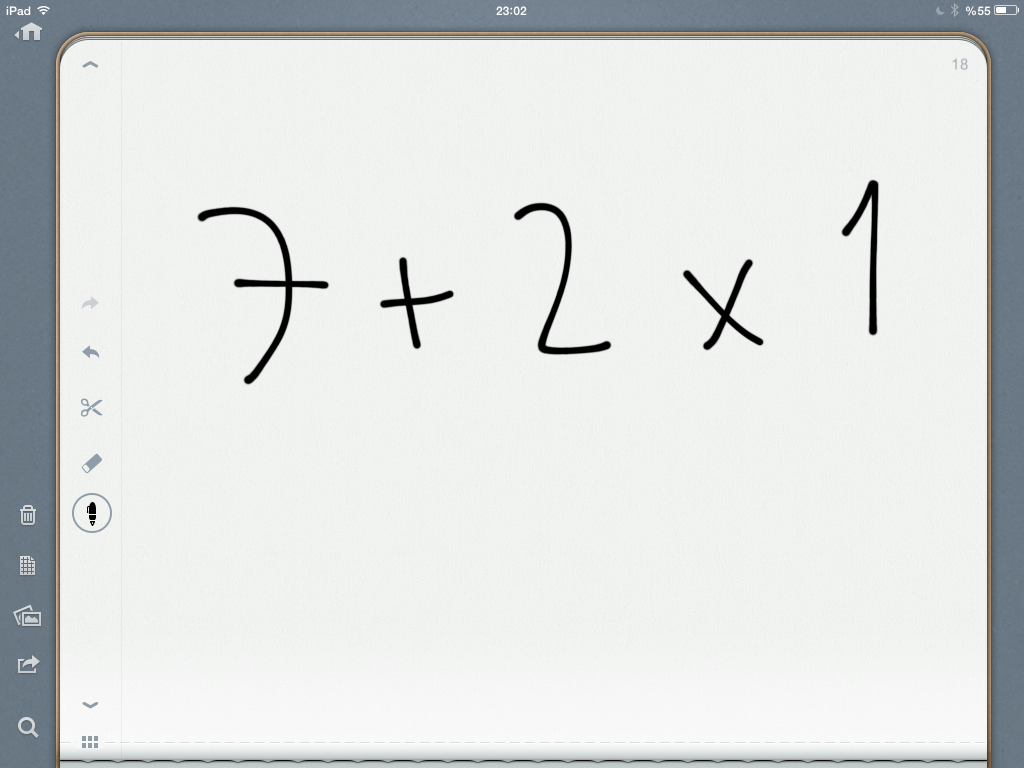 iPad 23:02 %55
18
7 + 2 x 1